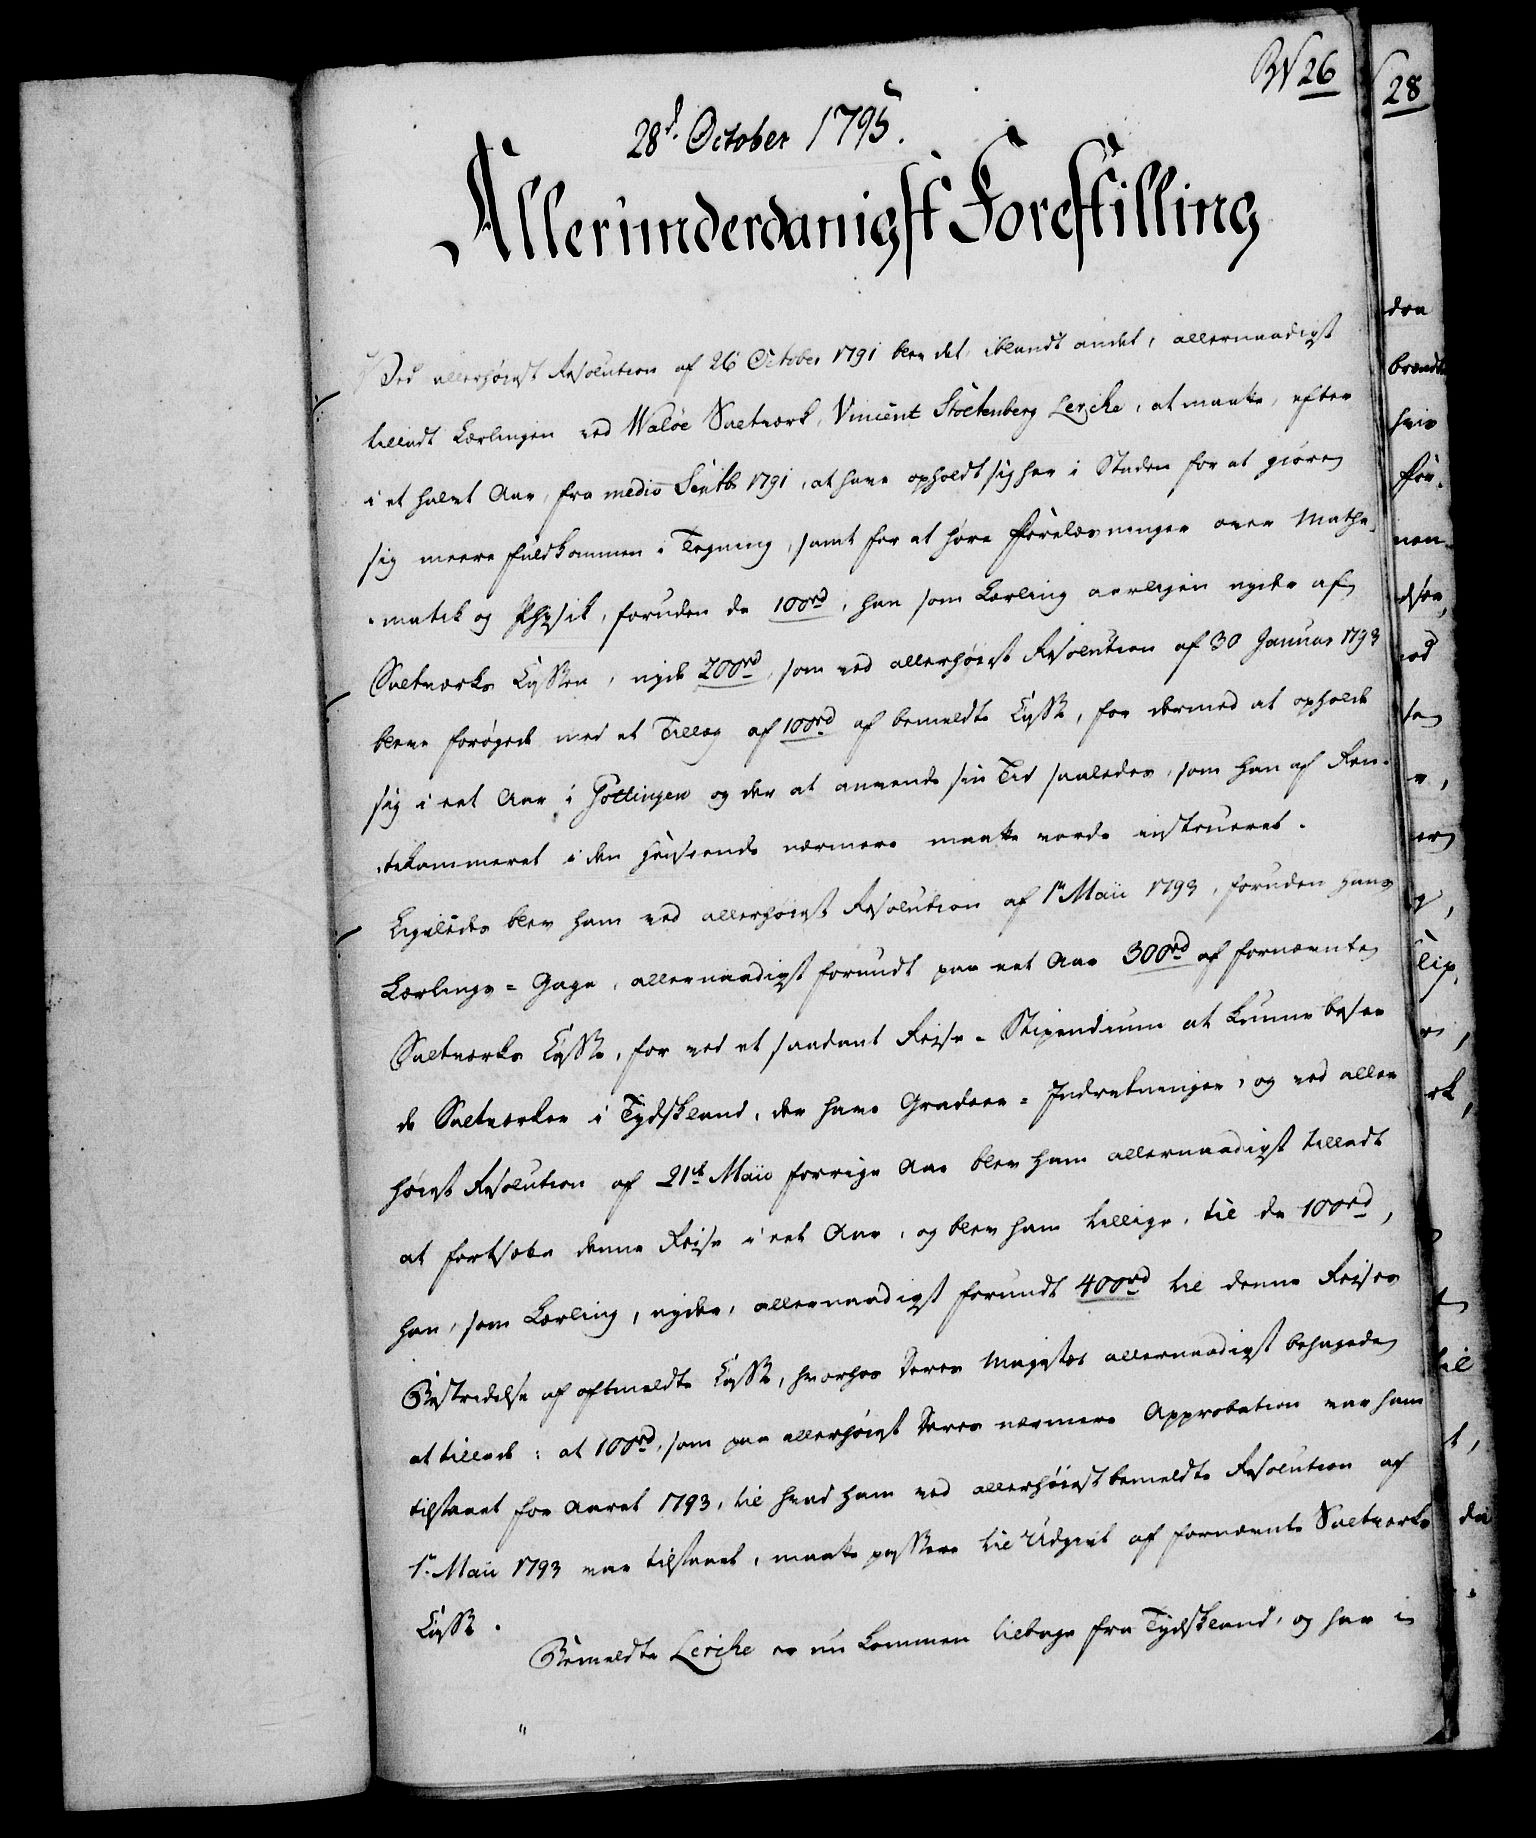 N 26
28d. October 1795.
Allerunderdanigst Forestilling
Ved allerhöiest Resolution af 26 October 1791 blev det, iblandt andet, allernaadigst
tilladt Lærlingen ved Walöe Saltværk, Vincent Stoltenberg Lerche, at maatte, efter
i et halvt Aar, fra medio Septbr 1791, at have opholdt sig her i Staden for at giöre
sig meere fuldkommen i Tegning, samt for at höre Forelæsninger over Mathe-
-matik og Physik, foruden de 100rd, han som Lærling aarligen nyder af
Saltværks Cassen, nyde 200rd, som ved allerhöiest Resolution af 30 Januar 1793
bleve forögede med et Tillæg af 100rd af bemeldte Casse, for dermed at opholde
sig i eet Aar i Göttingen og der at anvende sin Tid saaledes, som han af Ren-
-tekammeret i den Henseende nærmere maatte vorde instrueret.
Ligeledes blev ham ved allerhöiest Resolution af 1ste Maii 1793, foruden hans
Lærlings-Gage, allernaadigst forundt paa eet Aar 300rd af fornævnte
Saltværks Casse, for ved et saadant Reise-Stipendium at kunne besee
de Saltværker i Tydskland, der have Gradeer-Indretninger, og ved aller
höiest Resolution af 21de Maii forrige Aar blev ham allernaadigst tilladt
at fortsætte denne Reise i eet Aar, og blev ham tillige, til de 100rd,
han, som Lærling, nyder, allernaadigst forundt 400rd til denne Reises
Bestridelse af oftmeldte Casse, hvorhos Deres Majestæt allernaadigst behagede
at tillade: at 100rd, som paa allerhöiest Deres nærmere Approbation var ham
tilstaaet for Aaret 1793, til hvad ham ved allerhöiestbemeldte Resolution af
1ste Maii 1793 var tilstaaet, maatte passere til Udgivt af fornævnte Saltværks
Casse.
Bemeldte Lerche er nu kommen tilbage fra Tydskland, og har i
28